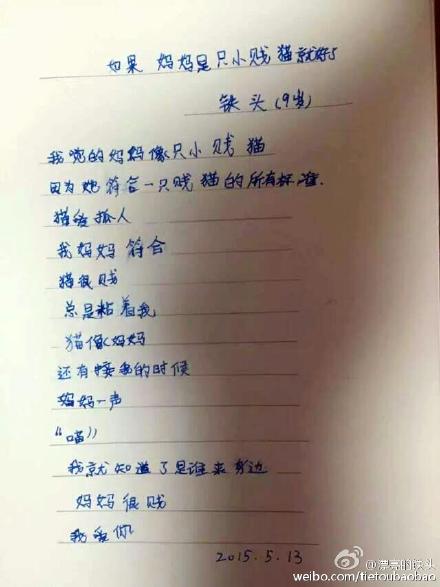 如果 妈妈是只小贱猫就好了
铁头(9岁)
我觉的妈妈像只小贱猫
因为她符合一只贱猫的所有标准.
猫爱抓人
我妈妈符合
猫很贱
总是粘着我
猫像妈妈
还有喽我的时候
妈妈一声
“喵”
我就知道了是谁来身边
妈妈很贱
我爱你
2015.5.13
@漂亮的铁头
weibo.com/tietoubaobao